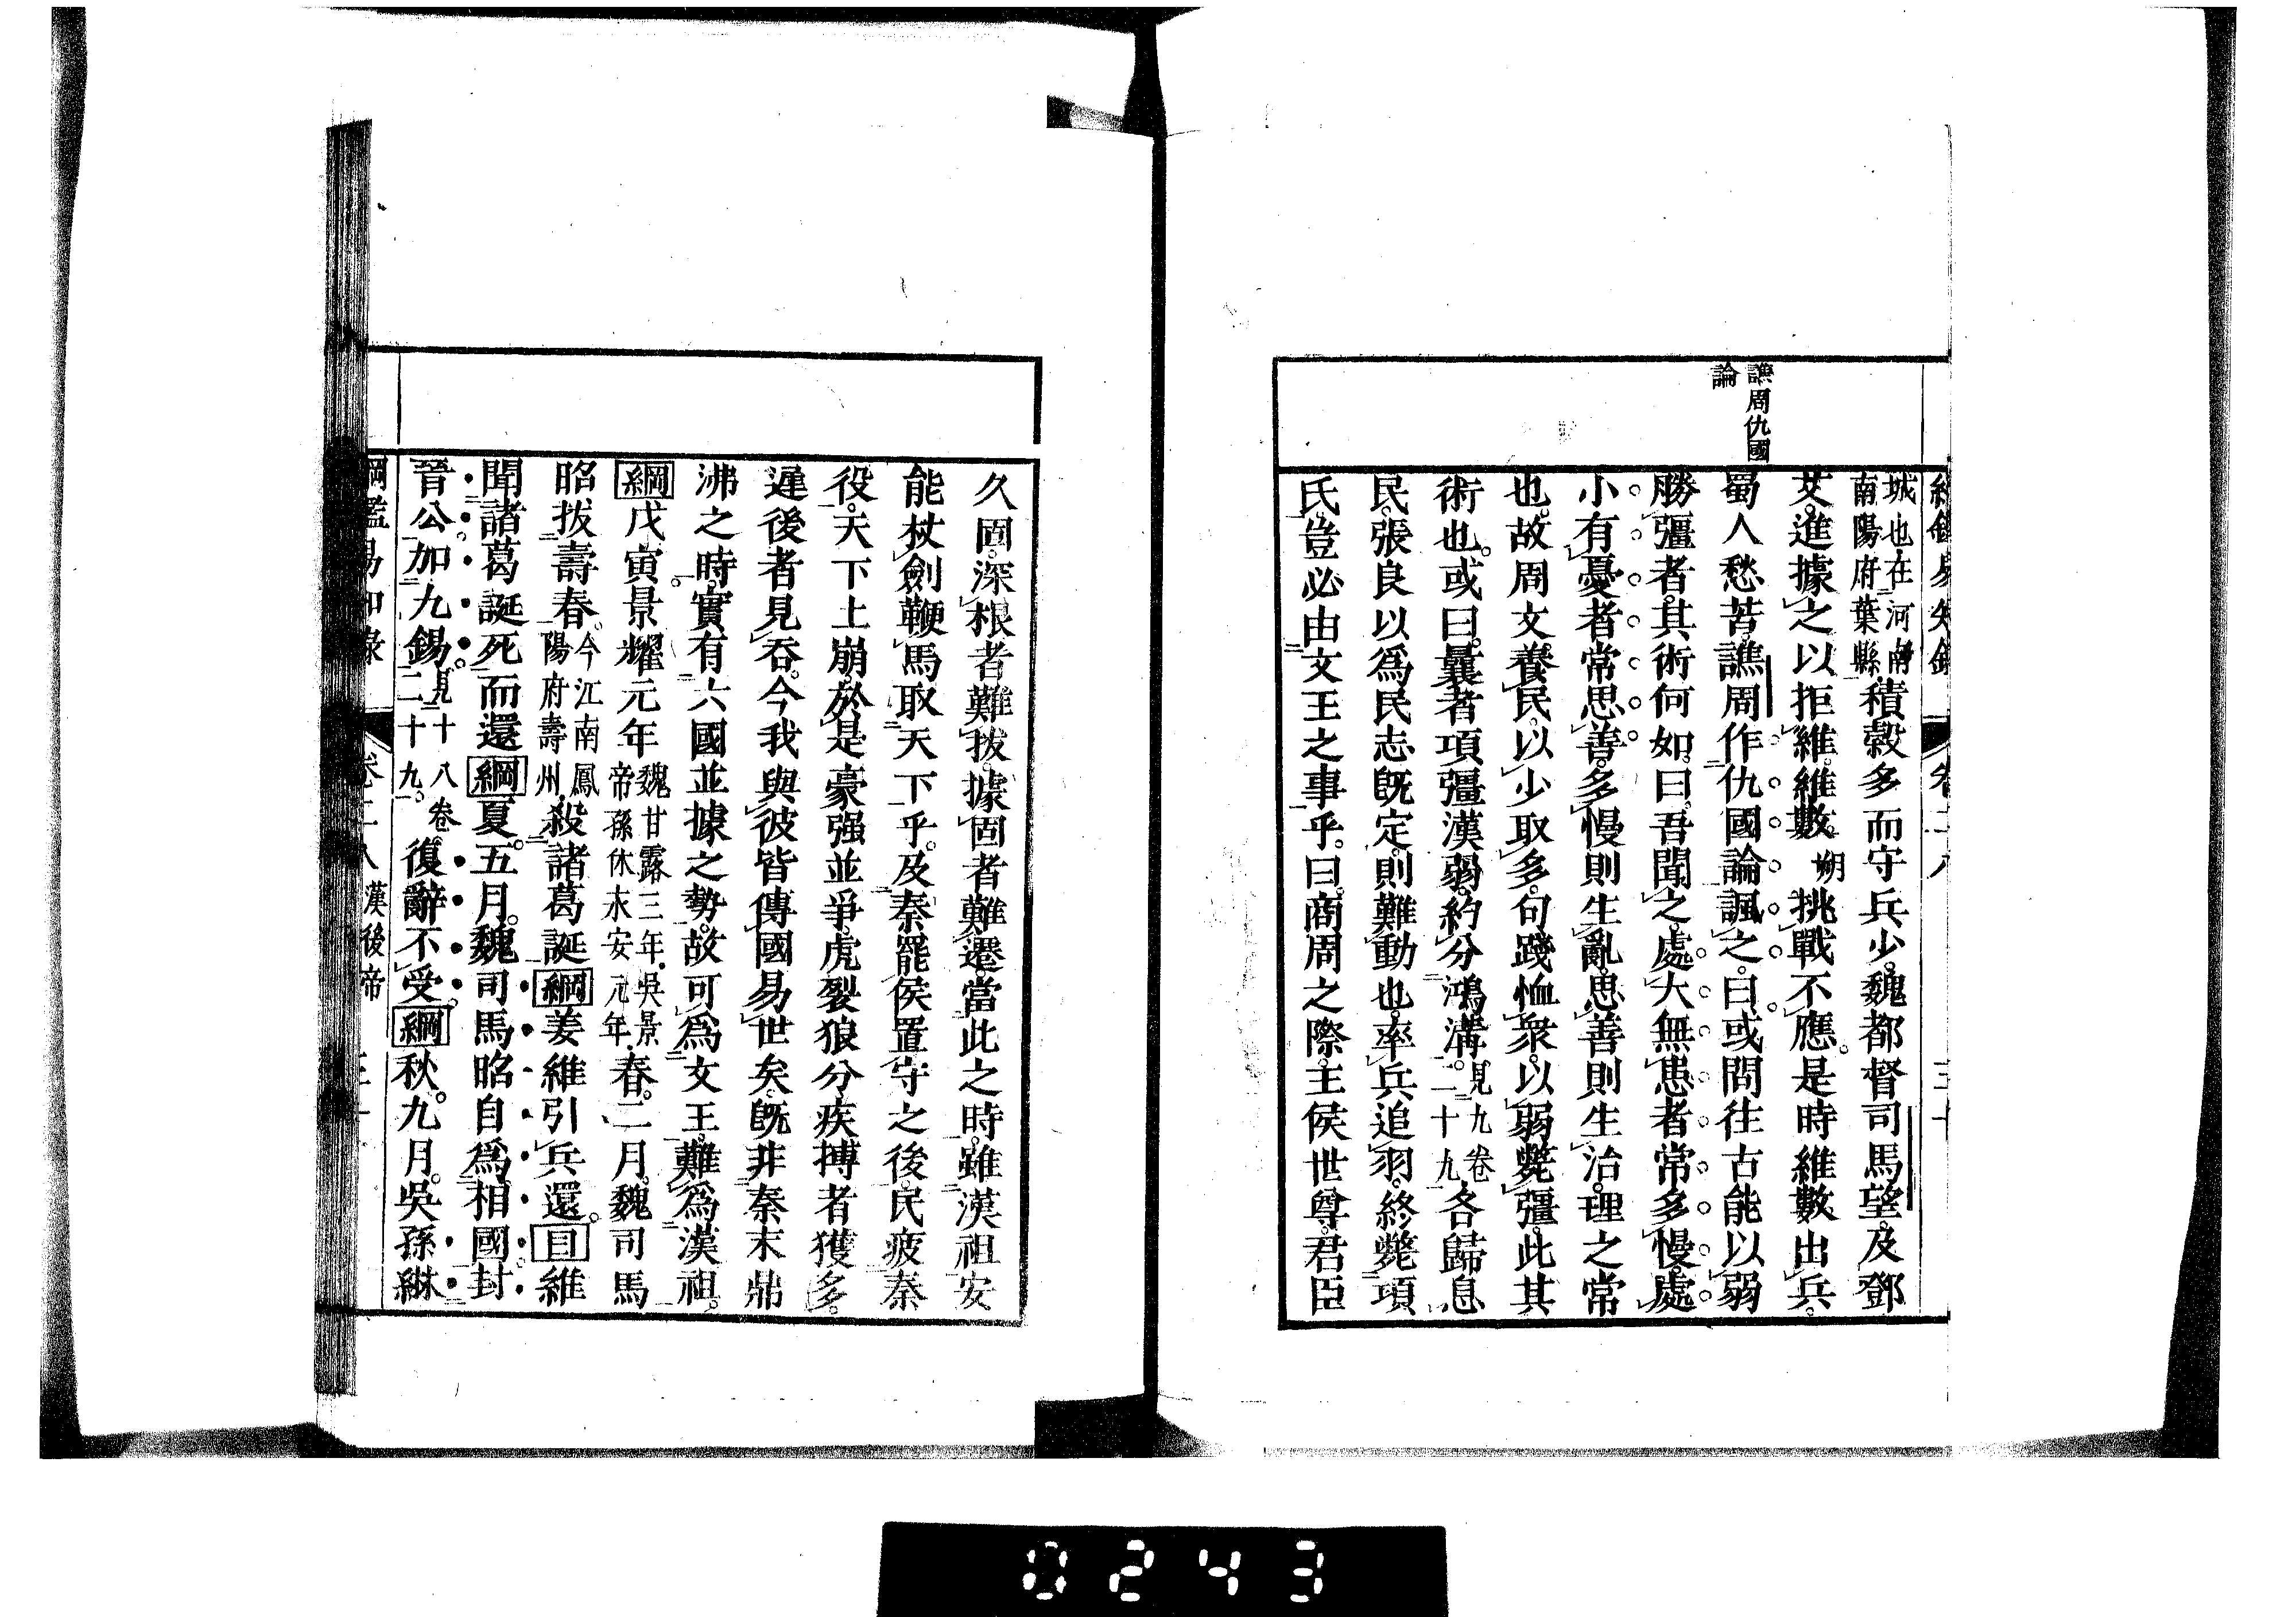 譙周仇國
論
城也在河南
南陽府葉縣積穀多而守兵少。魏都督司馬望。及鄧
艾。進據之以拒維。維數。朔挑戰不應。是時維數出兵。
蜀人愁苦。譙周作仇國論諷之。曰。或問往古能以弱
勝彊者。其術何如。曰。吾聞之。處大無患者常多慢。處
小有憂者常思善。多慢則生亂。思善則生治。理之常
也。故周文養民。以少取多。句踐恤衆。以弱斃彊。此其
術也。或曰。曩者項彊漢弱。約分鴻溝。見九卷二十九各歸息
民。張良以爲民志既定。則難動也。率兵追羽。終斃項
氏。豈必由文王之事乎。曰。商周之際。王侯世尊。君臣
久固。深根者難拔。據固者難遷。當此之時。雖漢祖安
能杖劍鞭馬取天下乎。及秦罷侯置守之後。民疲秦
役。天下土崩。於是豪强並爭。虎裂狼分。疾搏者獲多。
遲後者見吞。今我與彼皆傳國易世矣。既非秦末鼎
沸之時。實有六國並據之勢。故可爲文王。難爲漢祖。
綱戊寅景耀元年魏甘露三年吳景帝孫休永安元年春。二月。魏司馬
昭拔壽春。今江南鳳陽府壽州殺諸葛誕綱姜維引兵還。目維
聞諸葛誕死而還綱夏。五月。魏司馬昭自爲相國封
晉公。加九錫。見十八卷二十九復辭不受。綱秋。九月。吳孫綝
綱鑑易知錄 卷二八 漢後帝
0243